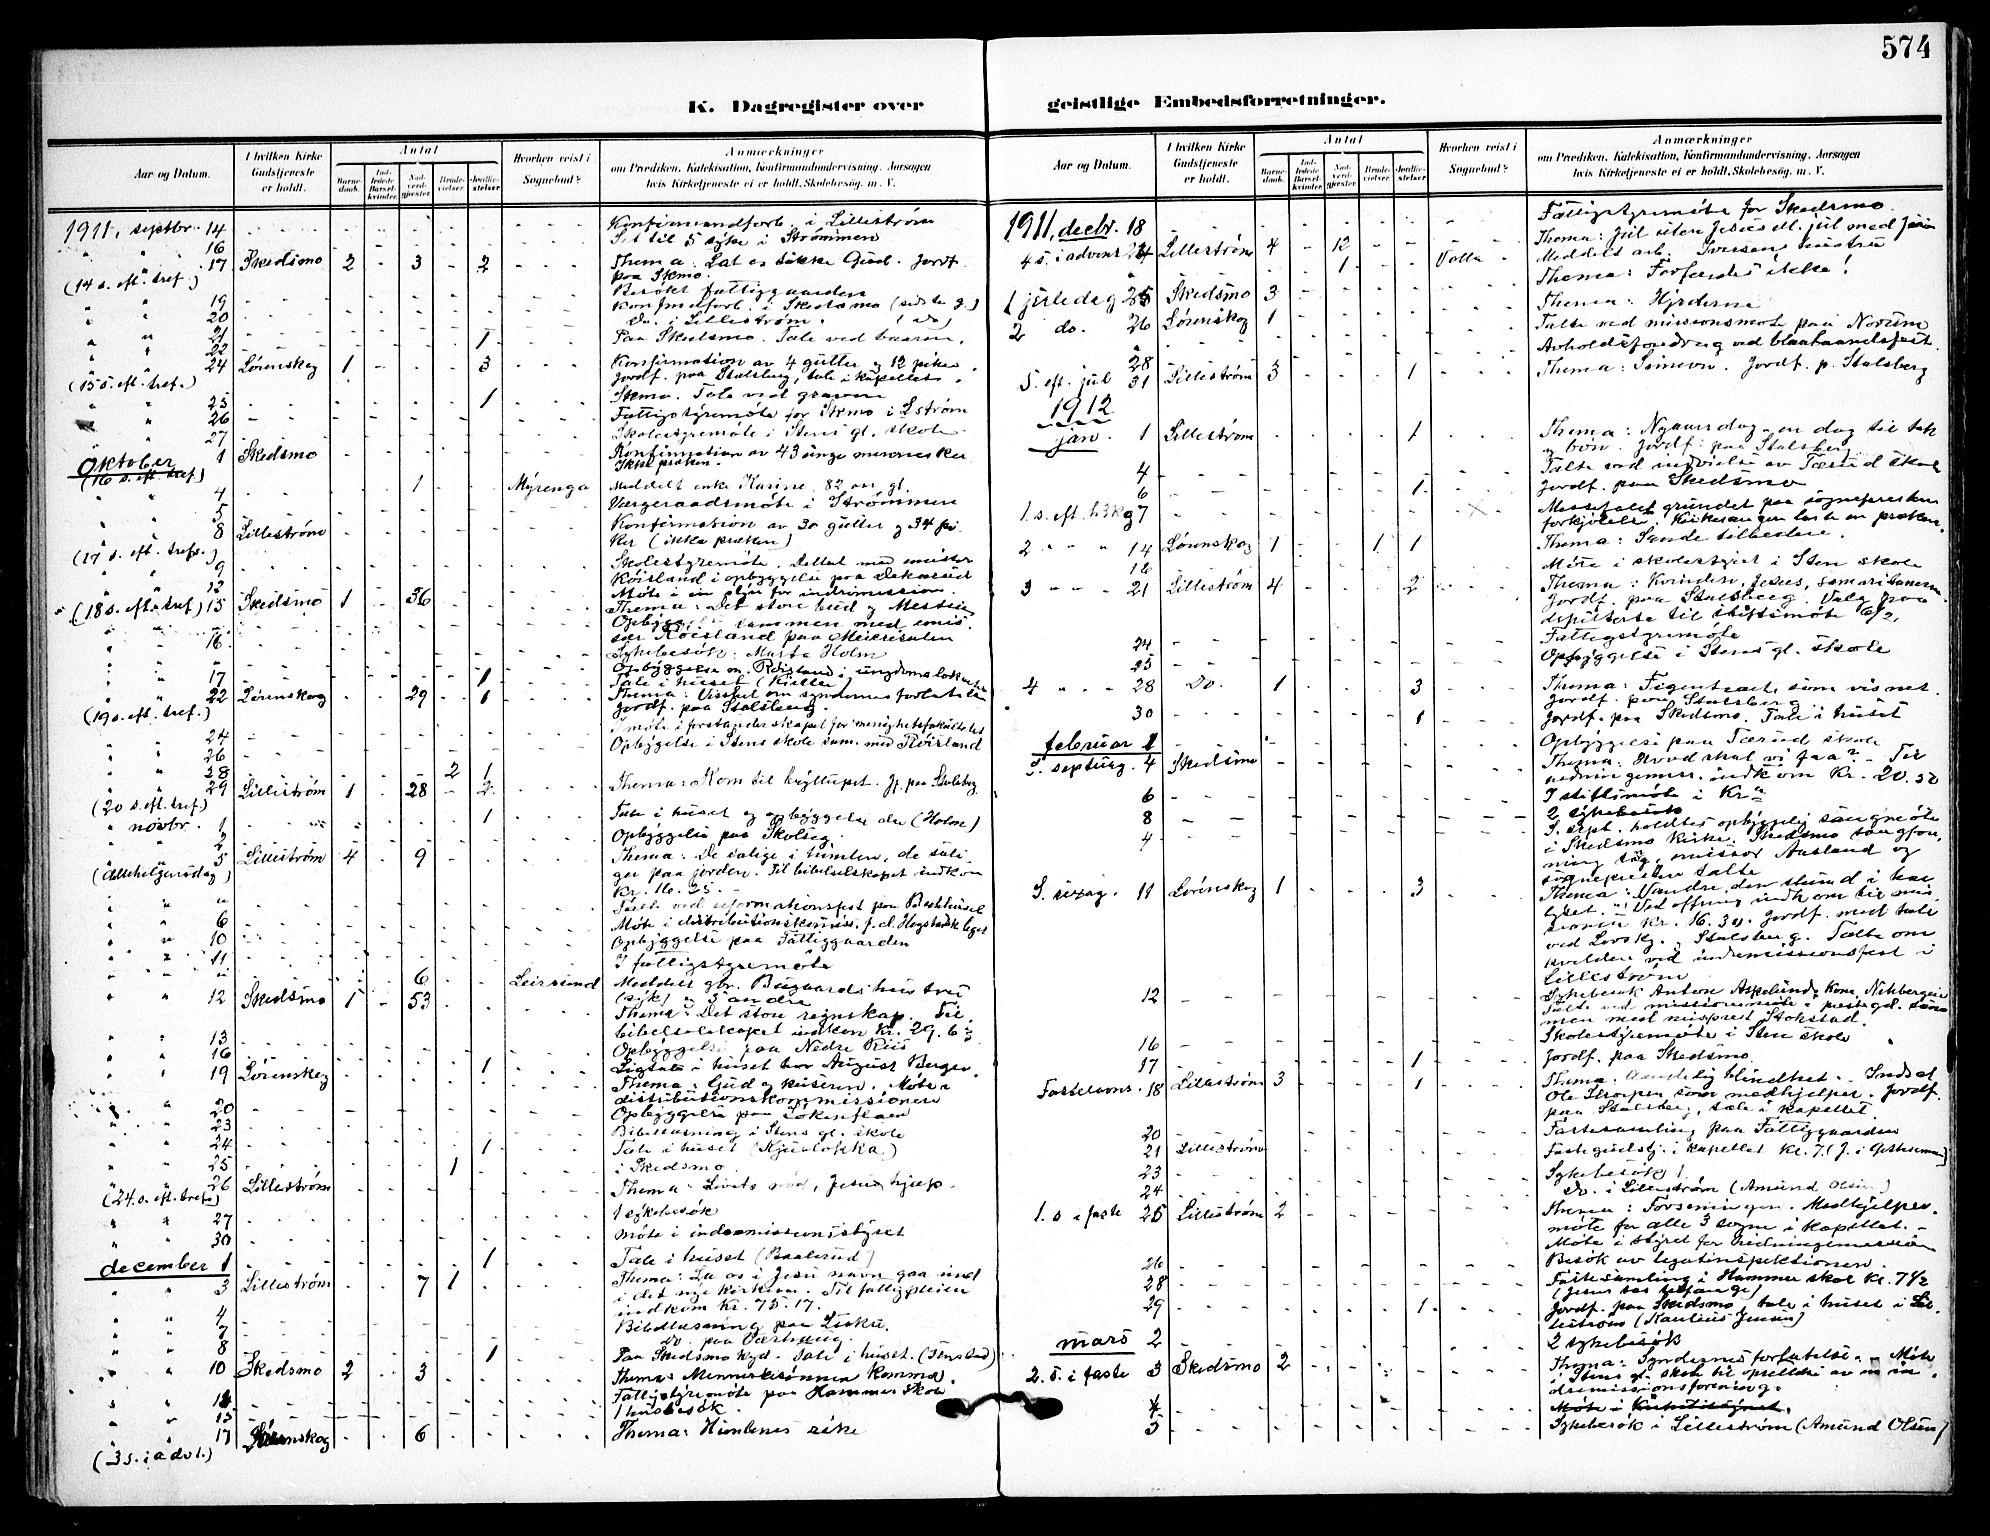 574
K. Dagregister over geistlige Embedsforretninger.
Aar og Datum.
I hvilken Kirke Gudstjeneste er holdt.
Antal
Barnedaab.
Indledede Barselkvinder.
Nadverdgjester
Brudevielser
Jordfæstelser
Hvorhen reist i Sognebud?
Anmærkninger
om Prædiken, Katekisation, Konfirmandundervisning, Aarsagen
hvis Kirketjeneste ei er holdt, Skolebesøg m. V.
1911, septbr. 14 Konfirmandforb. i Lillestrøm
16 Set til 5 syke i Strømmen
17 Skedsmo 2 - 3 - 2 Thema: Lat os søkke Gud. Jordf.
(14 s. eft. tref.) paa Skmo.
Besøkt fattiggaarden
19 Konfirmforb. i Skedsmo (sidste g.)
20 Do. i Lillestrøm. (Do)
21
22 1 Paa Skedsmo. Tale ved baaren.
24 Lørenskog 1 3 Konfirmation av 4 gutter og 12 piker
(15 s. eft. tref.) Jordf. paa Stalsberg, tale i kapellet.
25 1 Skmo. Tale ved graven
26 Fattigstyremöte for Skmo i Lstrøm
27 Skolestyremöte i Stens gl. skole
Oktober 1 Skedsmo Konfirmation av 43 unge mennesker
(16 s. eft. tref) Ikke præken.
4 1 Myrenga Meddelt enke Karine 82 aar gl.
5 Værgeraadsmöte i Strømmen
8 Lillestrøm Konfirmation av 30 gutter og 34 pi-
(17 s. eft. trefo.) ker (ikke præken)
9 Skolestyremöte. Deltat med emissær
Röisland i opbyggelse paa
12 Möte i styre for indremission.
(18 s. eft. tref) 15 Skedsmo 1 - 36 Thema: Det store bud og Messias
Opbygg. sammen med emis.
16. sær Röisland paa Meierisalen
Sykebesök: Marta Holm
Opbyggelse m. Röisland i ungdomslokalet
17 1 Tale i huset
22 Lørenskog - - 29 - 1 Thema: Visshet om syndernes forlatelse
(19 s. eft. tref.) Jordf. paa Stalsberg.
24 I möte i forstanderskapet for menighetsfakultetet
26 Opbyggelse i Stens skole sam. med Röisland
28 2 1
29 Lillestrøm 1 - 28 - 2 Thema: Kom til bryllupet. Jf. paa Stalsberg
(20 s. eft. tref)
novbr. 1 1 Tale i huset og opbyggelse der (Holm)
2 Opbyggelse paa
5 Lillestrøm 4 - 9 Thema: De salige i himlen, de sali-
(Allehelgensdag) ge paa jorden. Til bibelselskapet indkom
Kr. 16.25. -
" Taler ved reformationsfest paa Bedehuset
6 Möte i distributionskomiss.
10 Opbyggelse paa Fattiggaarden
11 I fattigstyremöte
" 6 Leirsund Meddelt gbr. hustru
12 Skedsmo 1 - 53 (syk) og 5 andre
Thema: Det store regnskap. Til
bibelselskapet indkom Kr. 29.6
13 Opbyggelse paa Nedre Riis
16 1 Ligtale i huset hos August Berger.
19 Lørenskog Thema: Gud og keiseren. Möte i
distributionskommissionen
20 Opbyggelse paa
23 Bibellæsning i Stens gl. skole
24 1 Tale i huset
25 1 i Skedsmo
26 Lillestrøm Thema: Livets nød, Jesus hjælp.
(24 s. eft. tref)
27 1 sykebesök
30 Möte i indremissionsstyret
december 1 1 Tale i huset (Baalerud)
3 Lillestrøm 7 1 Thema: La os i Jesu navn gaa ind
i det nye kirkeaar. Til fattigpleien
indkom Kr. 75.17.
4 Bibellæsning paa
7 Do. paa
8 1 Paa Skedsmo kgd. Tale i huset.
10 Skedsmo 2 - 3 Thema: Menneskesønnen komme.
Fattigstyremöte paa Hammer Skole
15 1 husbesök.
17 Lørenskog 6 Thema: Himlenes rike
(3 s. i advt.)
Aar og Datum.
I hvilken Kirke Gudstjeneste er holdt.
Antal
Barnedaab.
Indledede Barselkvinder.
Nadverdgjester
Brudevielser
Jordfæstelser
Hvorhen reist i Sognebud?
Anmærkninger
om Prædiken, Katekisation, Konfirmandundervisning, Aarsagen
hvis Kirketjeneste ei er holdt, Skolebesøg m. V.
1911, decbr. 18 Fattigstyremöte for Skedsmo
4 s. i advent 24 Lillestrøm 4 - 12 Thema: Jul uten Jesus el. jul med Jesus
1 Volla Meddelt arb. Iversens hustru
" Thema: Forfærdes ikke!
1 juledag 25 Skedsmo 3
2 do. 26 Lørenskog 1 Thema: Hyrderne
" Talte ved missionsmöte paa Norum
28 Avholdsforedrag ved blaabaandsfest.
S. eft. jul 31 Lillestrøm 3 1 Thema: Simeon. Jordf. p. Stalsberg
1912
jan. 1 Lillestrøm 1 Thema: Nyaarsdag - en dag til tak
og bøn. Jordf. paa Stalsberg.
4 Talte ved indvielse av Tærud skole
6 1 Jordf. paa Skedsmo
1 s. eft. h3kg 7 Messefald grundet paa sogneprestens
forkjølelse. Kirkesangeren læste en præken.
2 " " " 14 Lørenskog 1 1 1 Thema: Sande tilbedere.
16 Möte i skolestyret i Sten skole
3 " " " 21 Lillestrøm 4 2 Thema: Kvinden, Jesus, samaritanerne.
Jordf. paa Stalsberg. Valg paa
deputerte til stiftsmöte 6/2.
24 Fattigstyremöte
25 Opbyggelse i Stens gl. skole
4 " " " 28 Do. 1 3 Thema: Figentræet, som visnet.
Jordf. paa Stalsberg
30 1 Jordf. paa Skedsmo. Tale i huset
februar 1 Opbyggelse paa Tærud skole
S. septuag. 4 Skedsmo Thema: Hvad skal vi faa? - Til
indkom Kr. 20.50
6 I stiftsmöte i Kr.a
8 2 sykebesøk
4 S. sept. holdtes opbyggelig sangmöte
i Skedsmo Kirke. Skedsmo sangfore-
ning og
sognepresten talte
S. sexag. 11 Lørenskog 1 3 Thema: Vandre, den stund i har
lyset. Ved ofring indkom til mis-
sionen Kr. 16.30. Jordf. med tale
ved Lørskg. og Stalsberg. Talte om
kvelden ved indremissionsfest i
Lillestrøm
12 Sykebesøk Anton
Talte ved missionsmöte i prestegd. sam-
men med misprest Stokstad.
16 Skolestyremöte i Sten skole
17 1 Jordf. paa Skedsmo
Fastelavns. 18 Lillestrøm 3 1 Thema: Aandelig blindhet. Indsat
Ole Thorsen som medhjelper. Jordf.
paa Stalsberg, tale i kapellet.
20 Fastesamling paa Fattiggaarden
21 Lillestrøm Fastegudstj. i kapellet kl. 7.
23 Sykebesök
24 Do. i Lillestrøm (Amund Olsen)
1. s. i faste 25 Lillestrøm 2 Thema: Forsoningen. Medhjelper-
möte for alle 3 sogne i kapellet. -
Möte i styret for
26 Besök av legatinspektionen.
28 Fastesamling i Hammer skole kl. 7 1/2
(Jesus tas tilfange)
29 1 Jordf. paa Skedsmo, tale i huset i Lil-
lestrøm
mars 2 2 sykebesök
2. s. i faste 3 Skedsmo 2 Thema: Syndernes forlatelse. Möte
i Stens gl. skole til oprettelse av en in-
dremissionsforening.
4 Möte i
5 Sykebesøk i Lillestrøm (Amund Olsen)